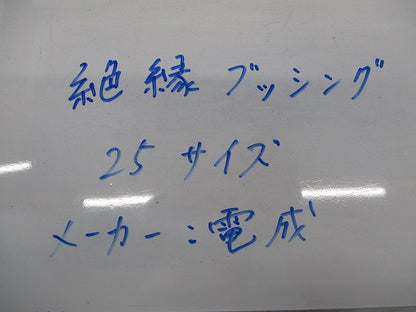 絶縁ブッシング
25サイズ
メーカー:電成